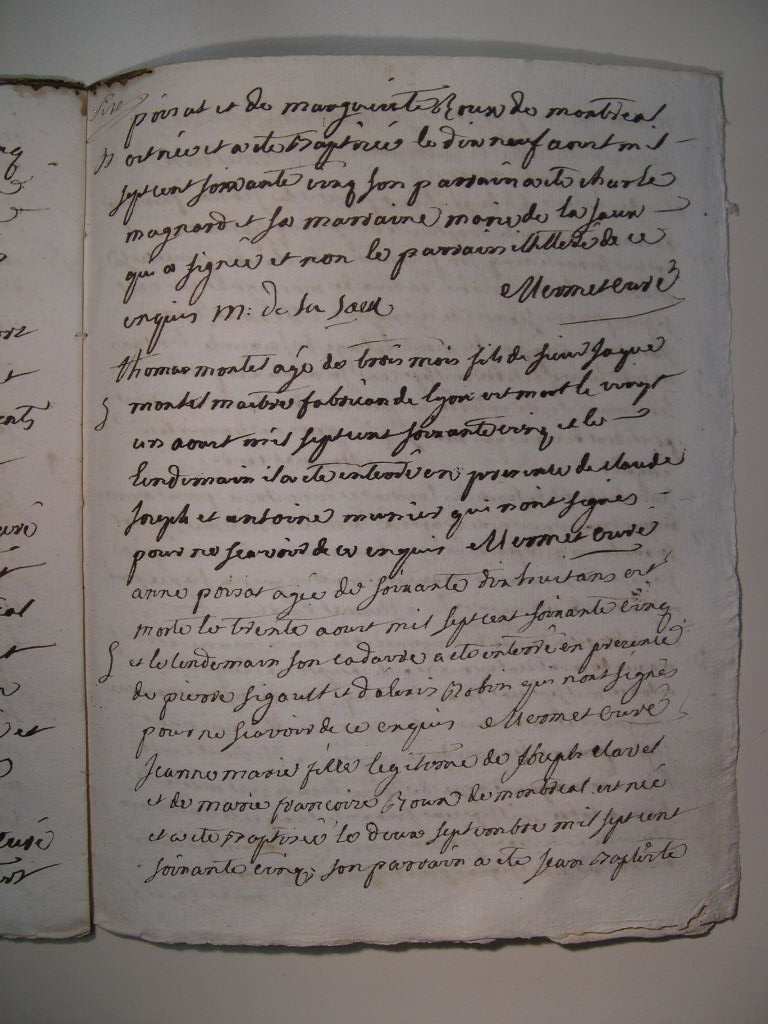 poisat et de marguerite Roux de montreal
est née et a ete Baptisée le dix neuf aout mil
sept cent soixante cinq son parrain a ete charle
magnard et sa marraine marie de la saux
qui a signée et non le parrain illiteré de ce
enquis M: de la saux Mermet curé
thomas montel agé de trois mois fils de sieur jaque
montel maitre fabrican de lyon est mort le vingt
un aout mil sept cent soixante cinq et le
lendemain il a ete enterré en presence de claude
joseph et antoine munier qui n'ont signés
pour ne scavoir de ce enquis Mermet curé
anne poisat agée de soixante dix huit ans est
morte le trente aout mil sept cent soixante cinq
et le lendemain son cadavre a ete enterré en presence
de pierre sigault et d'alexis Robin qui n'ont signés
pour ne scavoir de ce enquis Mermet curé
Jeanne marie fille legitime de Joseph clavel
et de marie francoise Roux de montreal est née
et a ete Baptisée le deux septembre mil sept cent
soixante cinq; son parrain a ete jean Baptiste